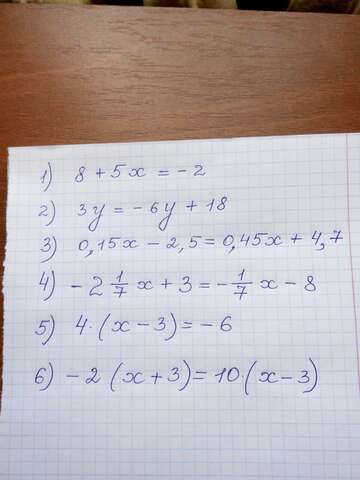 1) 8 + 5x = - 2
2) 3y = - 6y + 18
3) 0,15x - 2,5 = 0,45x + 4,7
4) - 2 1/7 x + 3 = - 1/7 x - 8
5) 4 · (x - 3) = - 6
6) - 2 (x + 3) = 10 · (x - 3)